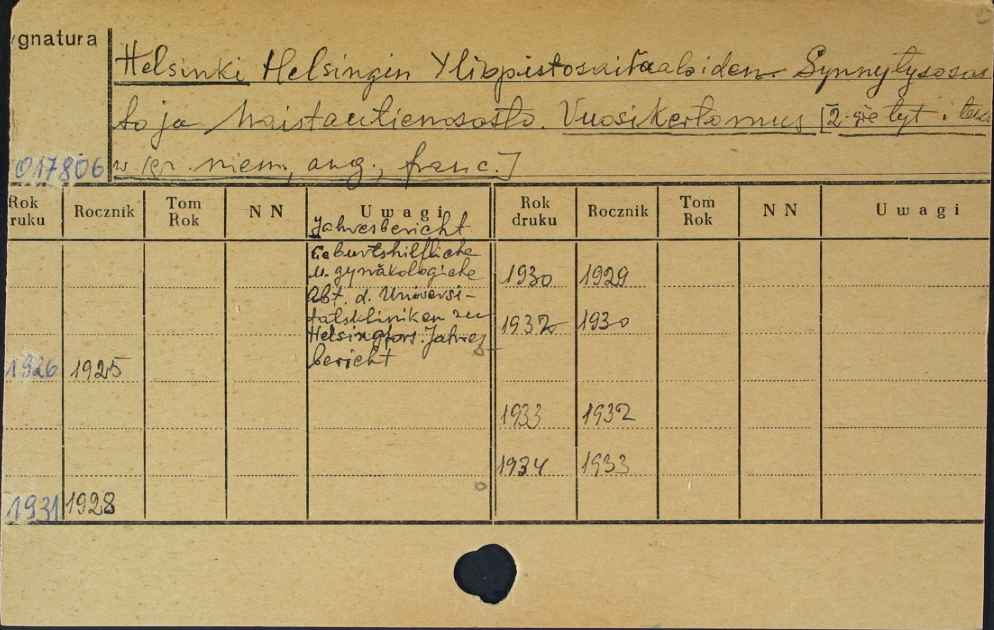 ygnatura
Helsinki Helsingin Yliopistosairaaloiden Synnytysosas
to ja Naistautienosasto. Vuosikertomus [2-gie tyt. i
017806 w jęz. niem, ang., franc.]
Rok ruku Rocznik Tom Rok N N Uwagi Rok druku Rocznik Tom Rok N N Uwagi
Jahresbericht
Geburtshilfliche
u. gynäkologische 1930 1929
Abt. d. Universi-
tätskliniken zu 1932 1930
Helsingfors. Jahres
1926 1925 bericht
1933 1932
1934 1933
1931 1928